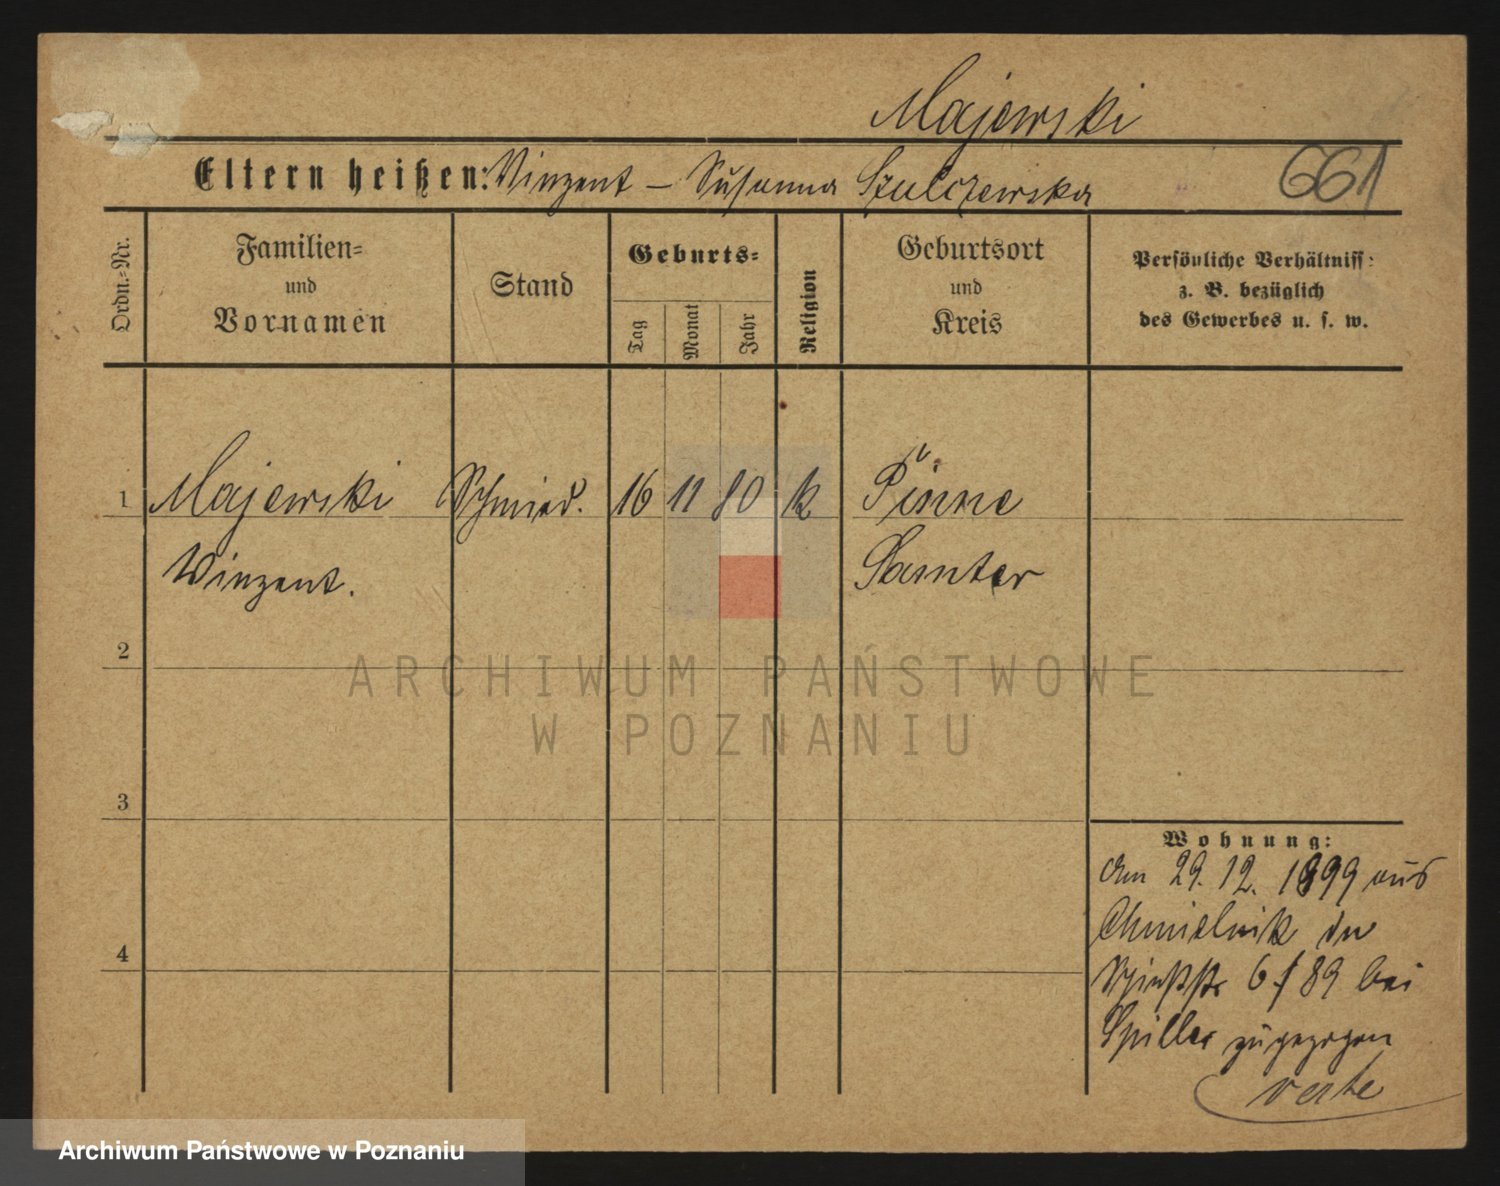 Majewski
Eltern heißen: Vinzent – Susanna Szulczewska
661
Ordn.=Nr.
Familien=
und
Vornamen
Stand
Geburts=
Tag
Monat
Jahr
Religion
Geburtsort
und
Kreis
Persönliche Verhältniss:
z. B. bezüglich
des Gewerbes u. s. w.
1 Majewski Schmied. 16 11 80 k Pinne
Vinzent. Samter
2
3
4
Wohnung:
Am 29. 12. 1899 aus
Chmielnik in
6 / 89 bei
Spiller zugezogen
verte
ARCHIWUM PAŃSTWOWE
W POZNANIU
Archiwum Państwowe w Poznaniu